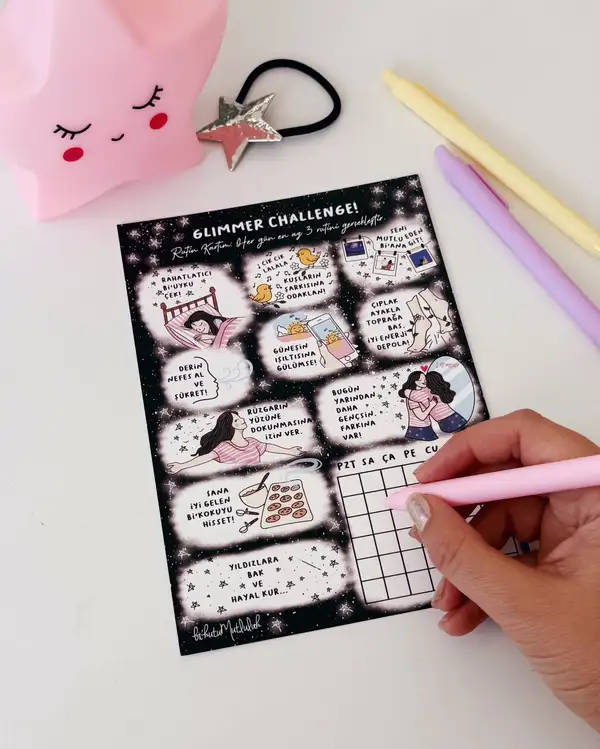 GLIMMER CHALLENGE!
Rutin Kartım: Her gün en az 3 rutini gerçekleştir.
RAHATLATICI
Bİ'UYKU
ÇEK!
CİK CİK
LALALA
KUŞLARIN
ŞARKISINA
ODAKLAN!
SENİ
MUTLU EDEN
Bİ'ANA GİT!
DERİN
NEFES AL
VE
ŞÜKRET!
GÜNEŞİN
IŞILTISINA
GÜLÜMSE!
ÇIPLAK
AYAKLA
TOPRAĞA
BAS.
İYİ ENERJİ
DEPOLA!
RÜZGARIN
YÜZÜNE
DOKUNMASINA
İZİN VER.
BUGÜN
YARINDAN
DAHA
GENÇSİN.
FARKINA
VAR!
SANA
İYİ GELEN
Bİ'KOKUYU
HİSSET!
PZT SA ÇA PE CU
YILDIZLARA
BAK
VE
HAYAL KUR...
bi'kutuMutluluk